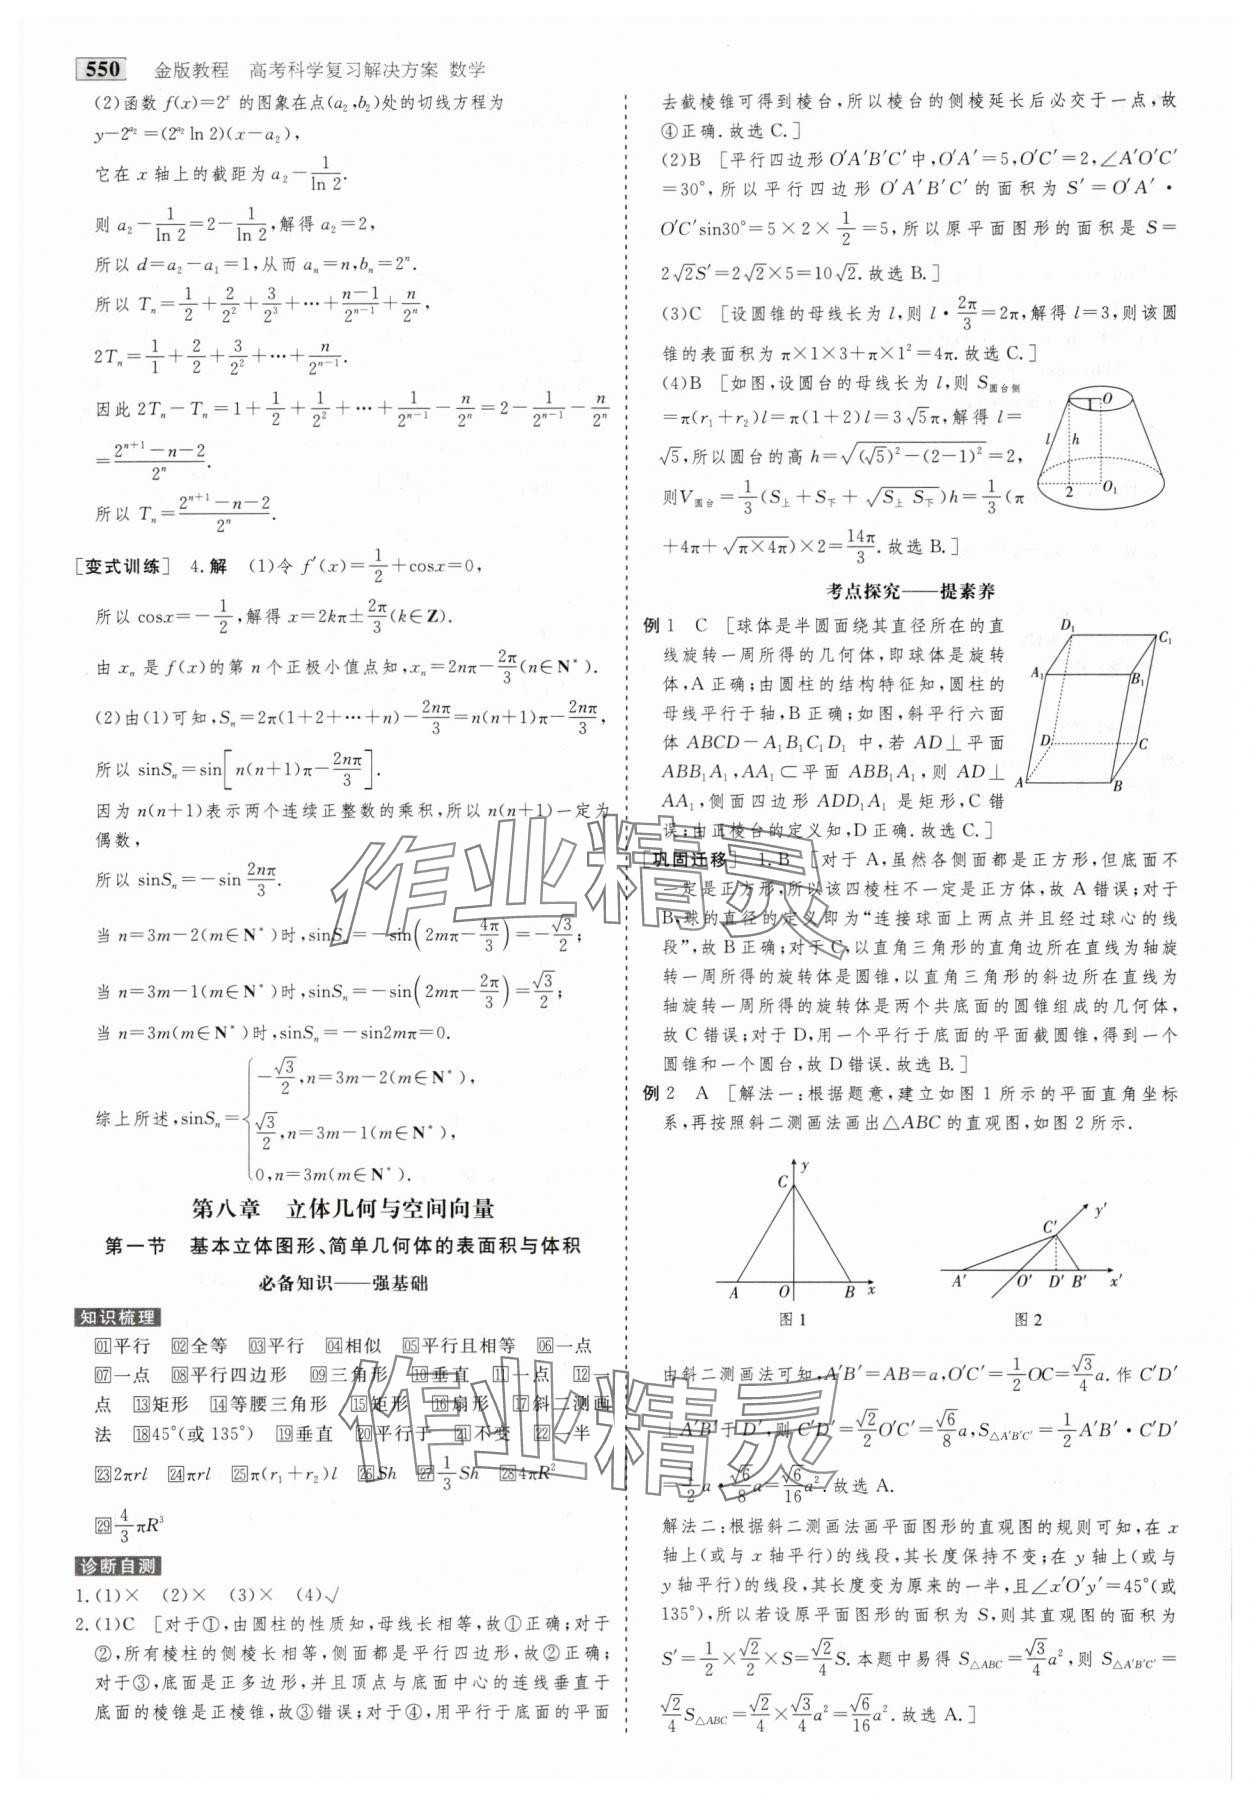 550 金版教程 高考科学复习解决方案 数学
(2)函数 f(x)=2ˣ 的图象在点(a₂,b₂)处的切线方程为
y-2^{a₂}=(2^{a₂}ln 2)(x-a₂),
它在 x 轴上的截距为 a₂-1/ln 2.
则 a₂-1/ln 2=2-1/ln 2,解得 a₂=2,
所以 d=a₂-a₁=1,从而 aₙ=n,bₙ=2ⁿ.
所以 Tₙ=1/2+2/2²+3/2³+…+(n-1)/2ⁿ⁻¹+n/2ⁿ,
2Tₙ=1/1+2/2+3/2²+…+n/2ⁿ⁻¹.
因此 2Tₙ-Tₙ=1+1/2+1/2²+…+1/2ⁿ⁻¹-n/2ⁿ=2-1/2ⁿ⁻¹-n/2ⁿ
=(2ⁿ⁺¹-n-2)/2ⁿ.
所以 Tₙ=(2ⁿ⁺¹-n-2)/2ⁿ.
[变式训练] 4.解 (1)令 f′(x)=1/2+cosx=0,
所以 cosx=-1/2,解得 x=2kπ±2π/3(k∈Z).
由 xₙ 是 f(x)的第 n 个正极小值点知,xₙ=2nπ-2π/3(n∈N*).
(2)由(1)可知,Sₙ=2π(1+2+…+n)-2nπ/3=n(n+1)π-2nπ/3,
所以 sinSₙ=sin[n(n+1)π-2nπ/3].
因为 n(n+1)表示两个连续正整数的乘积,所以 n(n+1)一定为
偶数,
所以 sinSₙ=-sin 2nπ/3.
当 n=3m-2(m∈N*)时,sinSₙ=-sin(2mπ-4π/3)=-√3/2;
当 n=3m-1(m∈N*)时,sinSₙ=-sin(2mπ-2π/3)=√3/2;
当 n=3m(m∈N*)时,sinSₙ=-sin2mπ=0.
综上所述,sinSₙ={-√3/2,n=3m-2(m∈N*),
√3/2,n=3m-1(m∈N*),
0,n=3m(m∈N*).
第八章 立体几何与空间向量
第一节 基本立体图形、简单几何体的表面积与体积
必备知识——强基础
知识梳理
01平行 02全等 03平行 04相似 05平行且相等 06一点
07一点 08平行四边形 09三角形 10垂直 11一点 12一
点 13矩形 14等腰三角形 15矩形 16扇形 17斜二测画
法 1845°(或 135°) 19垂直 20平行于 21不变 22一半
23 2πrl 24 πrl 25 π(r₁+r₂)l 26 Sh 27 1/3 Sh 28 4πR²
29 4/3 πR³
诊断自测
1.(1)× (2)× (3)× (4)√
2.(1)C [对于①,由圆柱的性质知,母线长相等,故①正确;对于
②,所有棱柱的侧棱长相等,侧面都是平行四边形,故②正确;
对于③,底面是正多边形,并且顶点与底面中心的连线垂直于
底面的棱锥是正棱锥,故③错误;对于④,用平行于底面的平面
去截棱锥可得到棱台,所以棱台的侧棱延长后必交于一点,故
④正确.故选 C.]
(2)B [平行四边形 O′A′B′C′中,O′A′=5,O′C′=2,∠A′O′C′
=30°,所以平行四边形 O′A′B′C′的面积为 S′=O′A′·
O′C′sin30°=5×2×1/2=5,所以原平面图形的面积是 S=
2√2S′=2√2×5=10√2.故选 B.]
(3)C [设圆锥的母线长为 l,则 l·2π/3=2π,解得 l=3,则该圆
锥的表面积为 π×1×3+π×1²=4π.故选 C.]
(4)B [如图,设圆台的母线长为 l,则 S圆台侧
=π(r₁+r₂)l=π(1+2)l=3√5π,解得 l=
√5,所以圆台的高 h=√((√5)²-(2-1)²)=2,
则V圆台=1/3(S上+S下+√(S上 S下))h=1/3(π
+4π+√(π×4π))×2=14π/3.故选 B.]
1 O
l h
2 O₁
考点探究——提素养
例 1 C [球体是半圆面绕其直径所在的直
线旋转一周所得的几何体,即球体是旋转
体,A 正确;由圆柱的结构特征知,圆柱的
母线平行于轴,B 正确;如图,斜平行六面
体 ABCD-A₁B₁C₁D₁ 中,若 AD⊥平面
ABB₁A₁,AA₁⊂平面 ABB₁A₁,则 AD⊥
AA₁,侧面四边形 ADD₁A₁ 是矩形,C 错
误;由正棱台的定义知,D 正确.故选 C.]
D₁ C₁
A₁ B₁
D C
A B
[巩固迁移] 1.B [对于 A,虽然各侧面都是正方形,但底面不
一定是正方形,所以该四棱柱不一定是正方体,故 A 错误;对于
B,球的直径的定义即为“连接球面上两点并且经过球心的线
段”,故 B 正确;对于 C,以直角三角形的直角边所在直线为轴旋
转一周所得的旋转体是圆锥,以直角三角形的斜边所在直线为
轴旋转一周所得的旋转体是两个共底面的圆锥组成的几何体,
故 C 错误;对于 D,用一个平行于底面的平面截圆锥,得到一个
圆锥和一个圆台,故 D 错误.故选 B.]
例 2 A [解法一:根据题意,建立如图 1 所示的平面直角坐标
系,再按照斜二测画法画出△ABC 的直观图,如图 2 所示.
y
C
A O B x
图 1
y′
C′
A′ O′ D′ B′ x′
图 2
由斜二测画法可知,A′B′=AB=a,O′C′=1/2 OC=√3/4 a.作 C′D′
⊥A′B′于 D′,则 C′D′=√2/2 O′C′=√6/8 a,S△A′B′C′=1/2 A′B′·C′D′
=1/2 a·√6/8 a=√6/16 a².故选 A.
解法二:根据斜二测画法画平面图形的直观图的规则可知,在 x
轴上(或与 x 轴平行)的线段,其长度保持不变;在 y 轴上(或与
y 轴平行)的线段,其长度变为原来的一半,且∠x′O′y′=45°(或
135°),所以若设原平面图形的面积为 S,则其直观图的面积为
S′=1/2×√2/2×S=√2/4 S.本题中易得 S△ABC=√3/4 a²,则 S△A′B′C′=
√2/4 S△ABC=√2/4×√3/4 a²=√6/16 a².故选 A.]
作业精灵
作业精灵